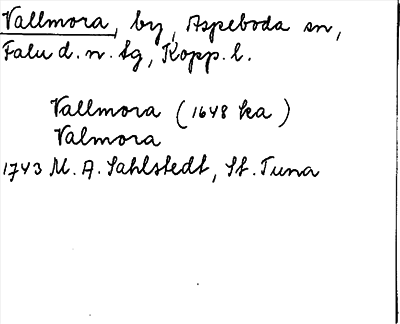 Vallmora, by, Aspeboda sn,
Falu d. n. tg, Kopp. l.
Vallmora (1648 ka)
Valmora
1743 M. A. Sahlstedt, St. Tuna